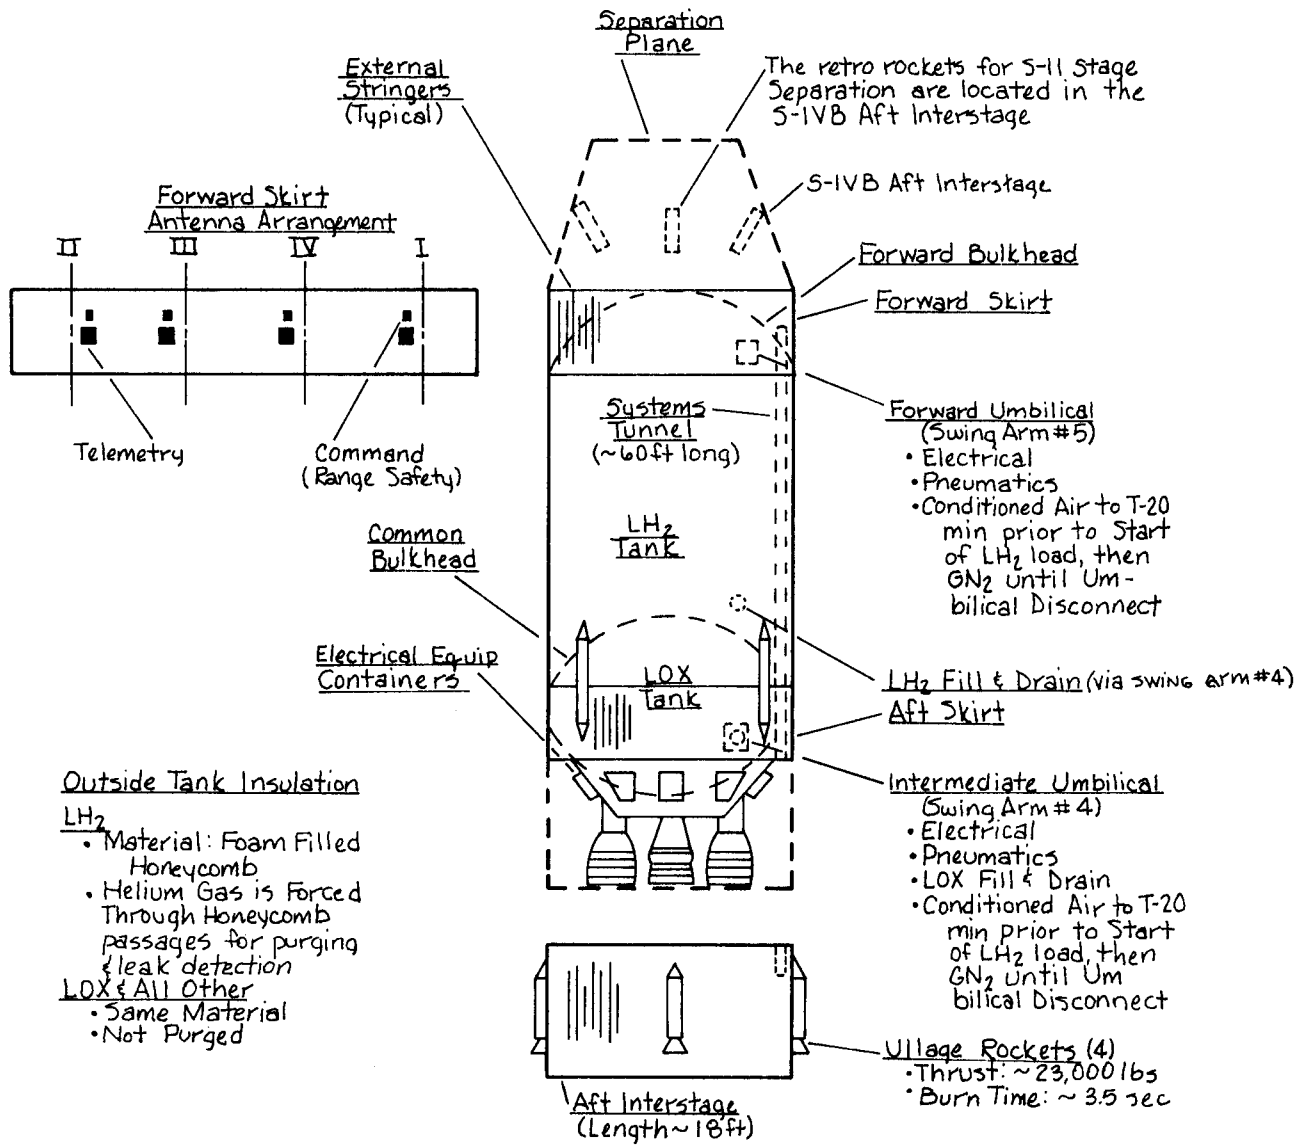 Separation
Plane
External
Stringers
(Typical)
The retro rockets for S-11 Stage
Separation are located in the
S-IVB Aft Interstage
S-IVB Aft Interstage
Forward Skirt
Antenna Arrangement
II III IV I
Telemetry
Command
(Range Safety)
Forward Bulkhead
Forward Skirt
Systems
Tunnel
(~60ft long)
Forward Umbilical
(Swing Arm #5)
• Electrical
• Pneumatics
• Conditioned Air to T-20
min prior to Start
of LH2 load, then
GN2 until Um-
bilical Disconnect
LH2
Tank
Common
Bulkhead
Electrical Equip
Containers
LOX
Tank
LH2 Fill & Drain (via swing arm #4)
Aft Skirt
Intermediate Umbilical
(Swing Arm #4)
• Electrical
• Pneumatics
• LOX Fill & Drain
• Conditioned Air to T-20
min prior to Start
of LH2 load, then
GN2 until Um
bilical Disconnect
Outside Tank Insulation
LH2
• Material: Foam Filled
Honeycomb
• Helium Gas is Forced
Through Honeycomb
passages for purging
& leak detection
LOX & All Other
• Same Material
• Not Purged
Ullage Rockets (4)
• Thrust: ~23,000 lbs
• Burn Time: ~ 3.5 sec
Aft Interstage
(Length ~ 18ft)